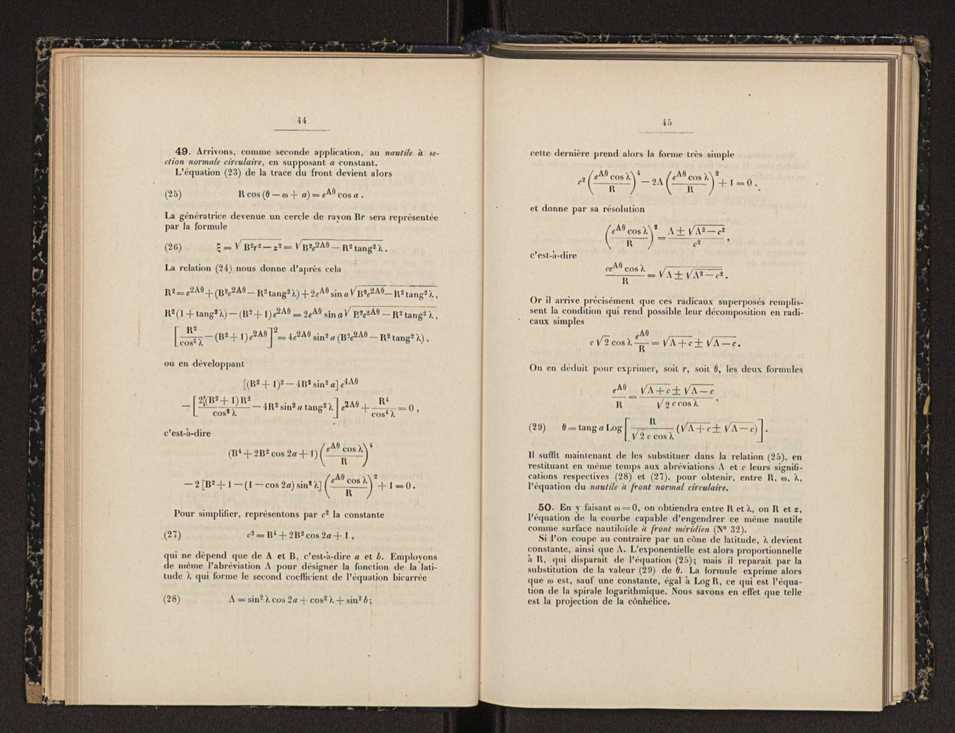 44
49. Arrivons, comme seconde application, au nautile à se-
ction normale circulaire, en supposant a constant.
L'équation (23) de la trace du front devient alors
(25) R cos (θ — ω + a) = e^{Aθ} cos a .
La génératrice devenue un cercle de rayon Br sera représentée
par la formule
(26) ξ = √(B²r² — z²) = √(B²e^{2Aθ} — R² tang² λ) .
La relation (24) nous donne d'après cela
R² = e^{2Aθ} + (B²e^{2Aθ} — R² tang² λ) + 2e^{Aθ} sin a √(B²e^{2Aθ} — R² tang² λ) ,
R² (1 + tang² λ) — (B² + 1) e^{2Aθ} = 2e^{Aθ} sin a √(B²e^{2Aθ} — R² tang² λ) ,
[R²/cos² λ — (B² + 1) e^{2Aθ}]² = 4e^{2Aθ} sin² a (B²e^{2Aθ} — R² tang² λ) .
ou en développant
[(B² + 1)² — 4B² sin² a] e^{4Aθ}
— [2(B² + 1) R²/cos² λ — 4R² sin² a tang² λ] e^{2Aθ} + R⁴/cos⁴ λ = 0 ,
c'est-à-dire
(B⁴ + 2B² cos 2a + 1) (e^{Aθ} cos λ/R)⁴
— 2 [B² + 1 — (1 — cos 2a) sin² λ] (e^{Aθ} cos λ/R)² + 1 = 0 .
Pour simplifier, représentons par c² la constante
(27) c² = B⁴ + 2B² cos 2a + 1 ,
qui ne dépend que de A et B, c'est-à-dire a et b. Employons
de même l'abréviation Λ pour désigner la fonction de la lati-
tude λ qui forme le second coefficient de l'équation bicarrée
(28) Λ = sin² λ cos 2a + cos² λ + sin² b ;
45
cette dernière prend alors la forme très simple
c² (e^{Aθ} cos λ/R)⁴ — 2Λ (e^{Aθ} cos λ/R)² + 1 = 0 .
et donne par sa résolution
(e^{Aθ} cos λ/R)² = (Λ ± √(Λ² — c²))/c² ,
c'est-à-dire
ce^{Aθ} cos λ/R = √(Λ ± √(Λ² — c²)) .
Or il arrive précisément que ces radicaux superposés remplis-
sent la condition qui rend possible leur décomposition en radi-
caux simples
c √2 cos λ e^{Aθ}/R = √(Λ + c) ± √(Λ — c) .
On en déduit pour exprimer, soit r, soit θ, les deux formules
e^{Aθ}/R = (√(Λ + c) ± √(Λ — c))/(√2 c cos λ) ,
(29) θ = tang a Log [R/(√2 c cos λ) (√(Λ + c) ± √(Λ — c))] .
Il suffit maintenant de les substituer dans la relation (25), en
restituant en même temps aux abréviations Λ et c leurs signifi-
cations respectives (28) et (27), pour obtenir, entre R, ω, λ,
l'équation du nautile à front normal circulaire.
50. En y faisant ω = 0, on obtiendra entre R et λ, ou R et z,
l'équation de la courbe capable d'engendrer ce même nautile
comme surface nautiloïde à front méridien (N° 32).
Si l'on coupe au contraire par un cône de latitude, λ devient
constante, ainsi que Λ. L'exponentielle est alors proportionnelle
à R, qui disparait de l'équation (25) ; mais il reparait par la
substitution de la valeur (29) de θ. La formule exprime alors
que ω est, sauf une constante, égal à Log R, ce qui est l'équa-
tion de la spirale logarithmique. Nous savons en effet que telle
est la projection de la cônhélice.